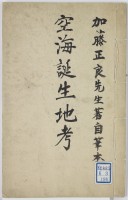 加藤正良先生著自筆本
空海誕生地考